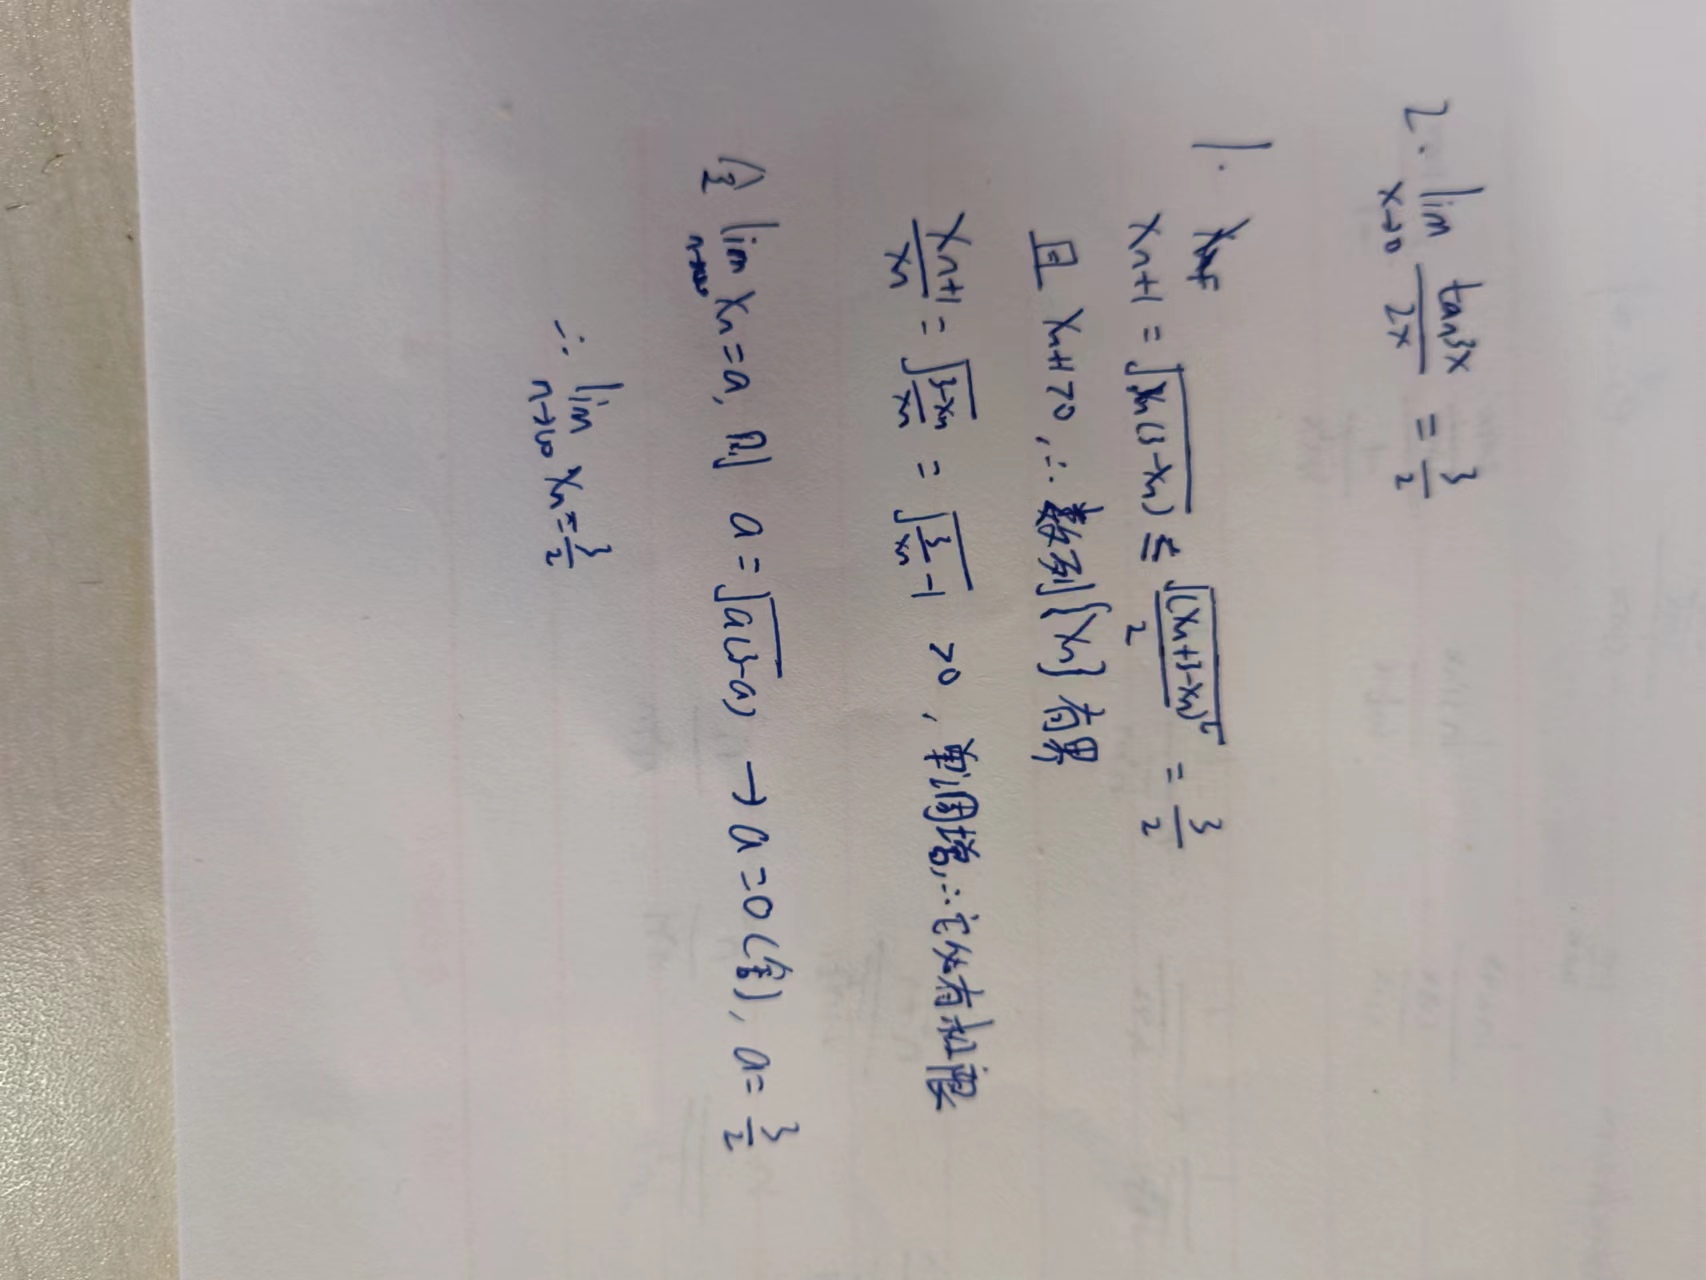 2. lim x→0 tan3x / 2x = 3/2
1.
x_{n+1} = √(x_n(3-x_n)) ≤ √((x_n+3-x_n)²) / 2 = 3/2
且 x_{n+1}>0, ∴ 数列{x_n}有界
x_{n+1}/x_n = √((3-x_n)/x_n) = √(3/x_n -1) >0, 单调增, ∴它必有极限
令 lim n→∞ x_n=a, 则 a=√(a(3-a)) → a=0(舍), a=3/2
∴ lim n→∞ x_n=3/2